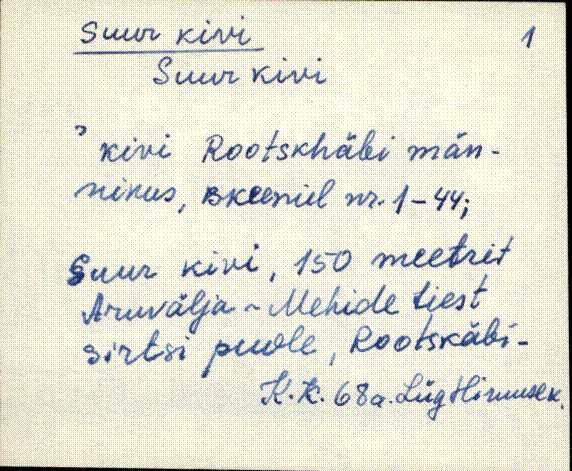 Suur kivi
1
Suur kivi
kivi Rootskhäbi män-
nikus, skeemil nr. 1-44;
Suur kivi, 150 meetrit
Aruvälja - Mehide tiest
sirtsi puole, Rootskäbi-
K.K. 68a. Lüg